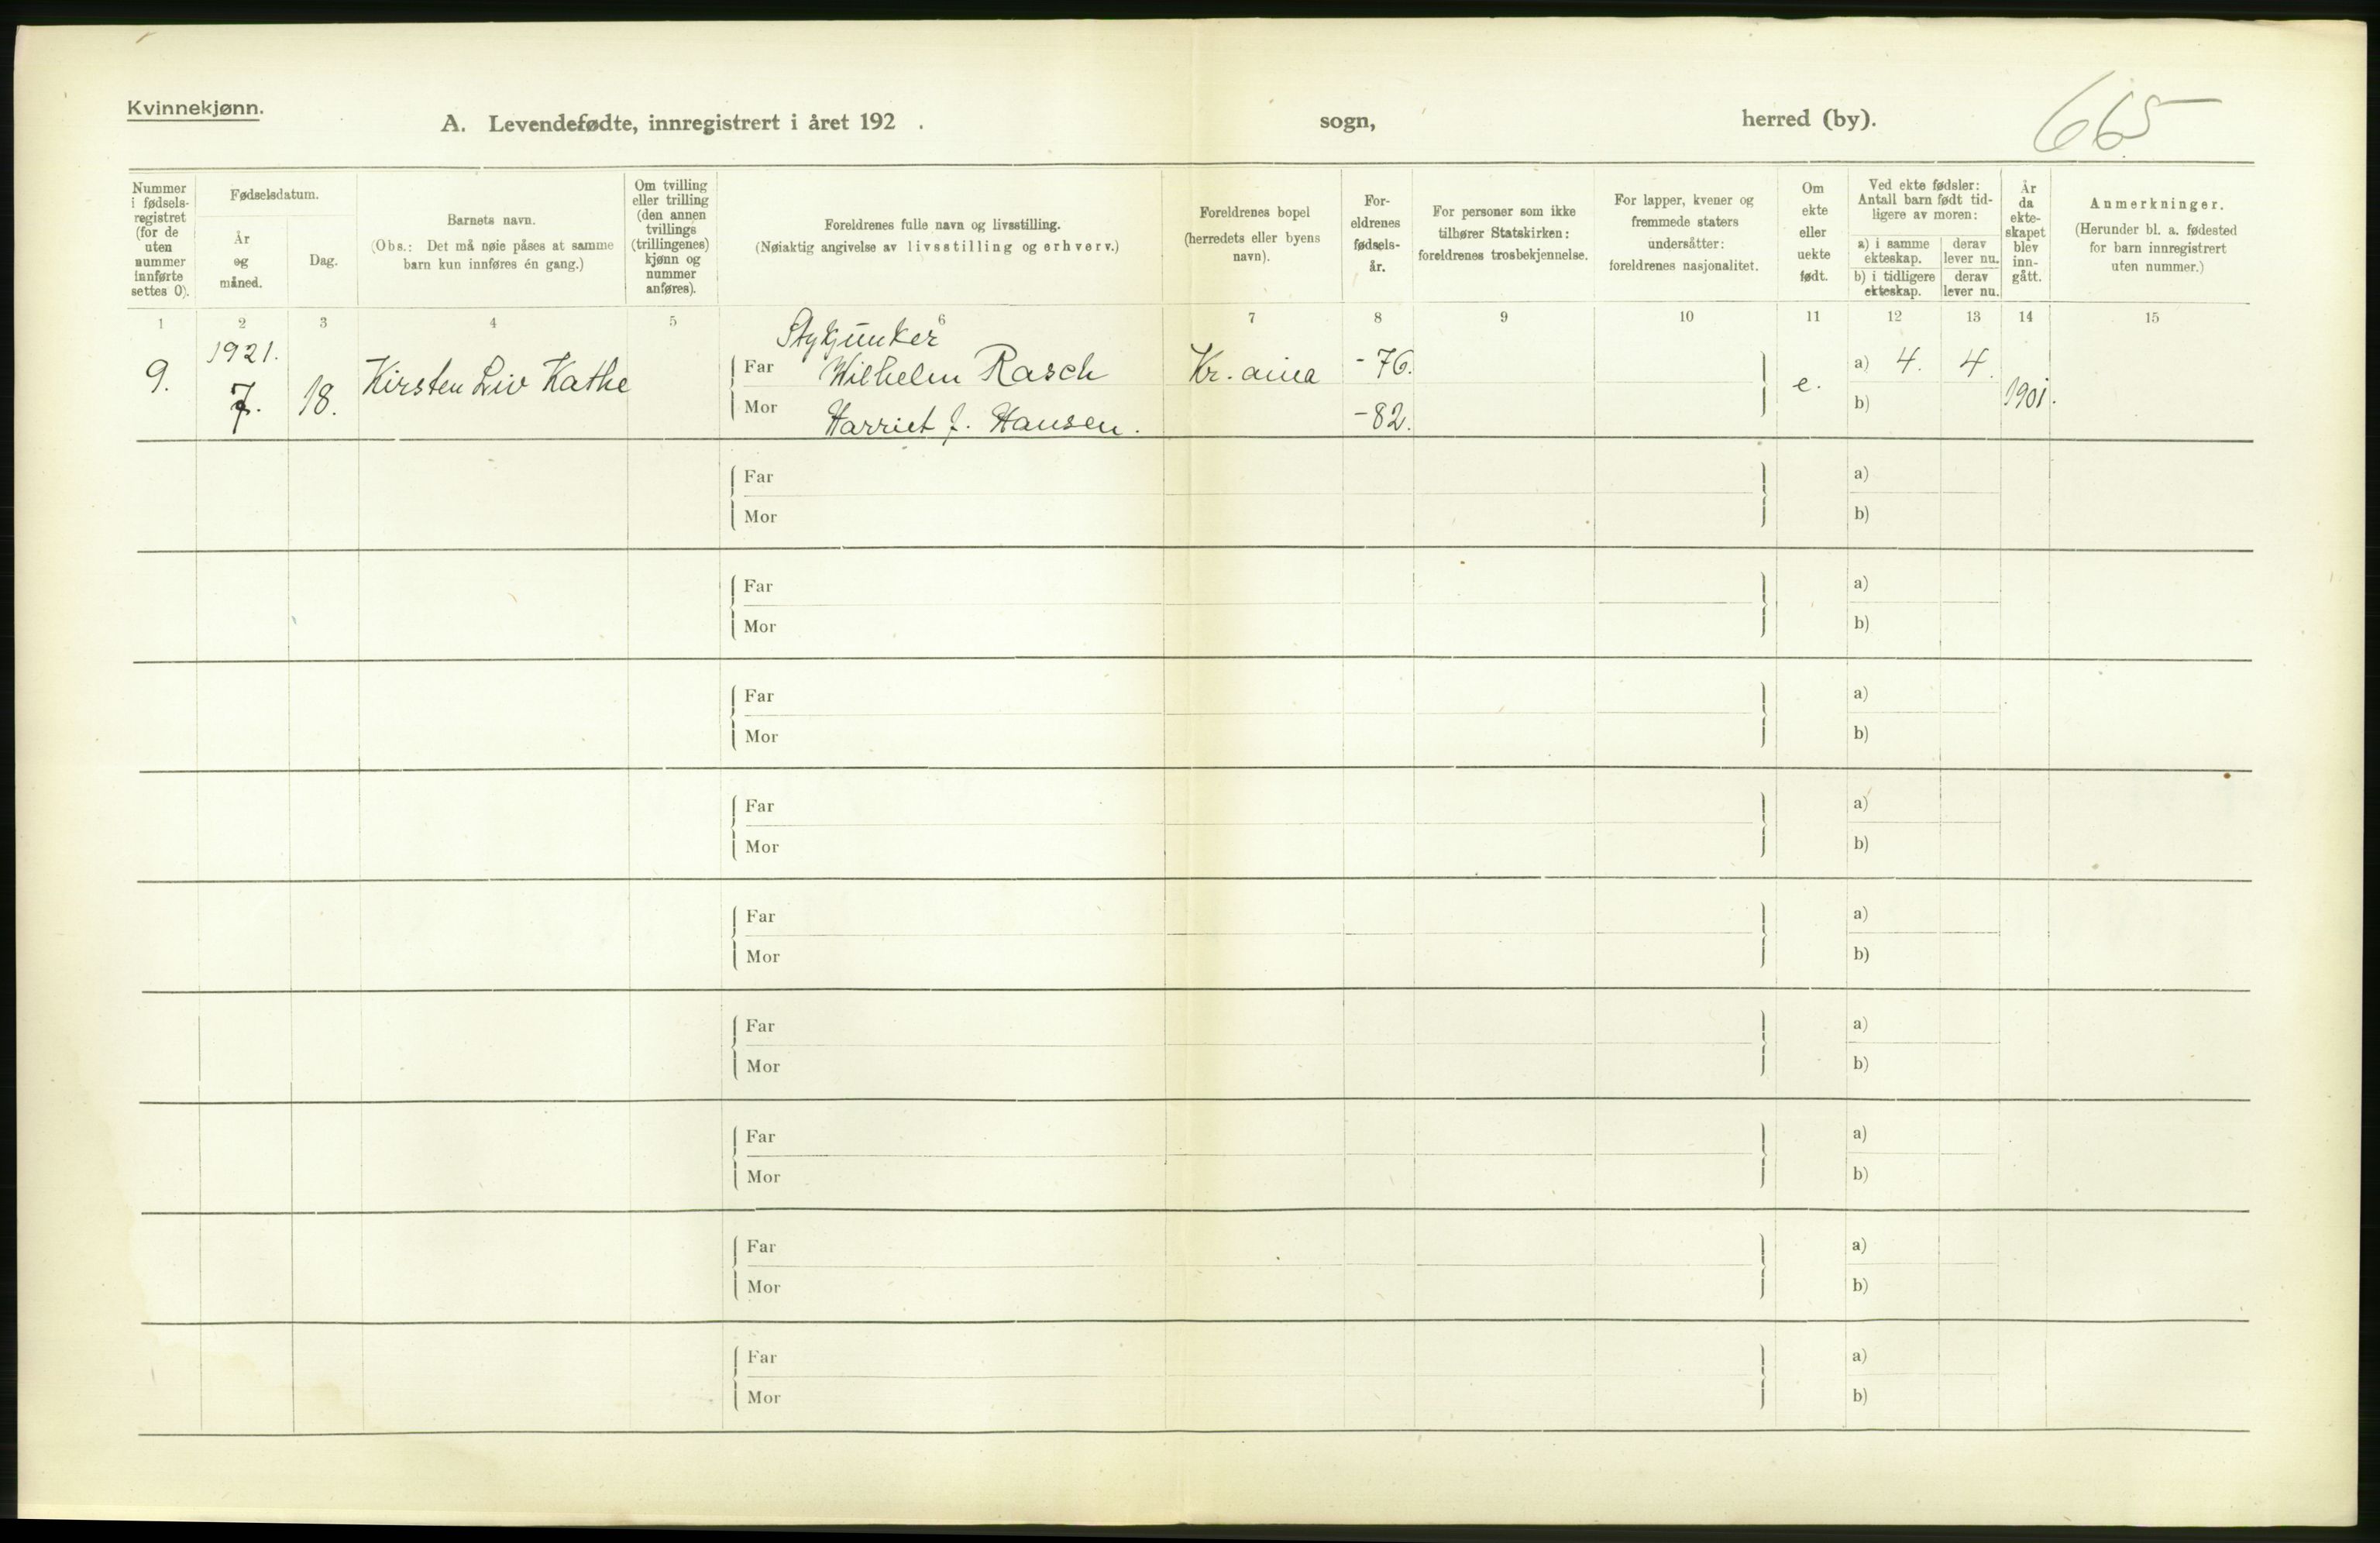 Kvinnekjønn.
A. Levendefødte, innregistrert i året 192 . sogn, herred (by). 665
Nummer i fødsels-registret (for de uten nummer innførte settes 0).
Fødselsdatum.
År og måned.
Dag.
Barnets navn.
(Obs.: Det må nøie påses at samme barn kun innføres én gang.)
Om tvilling eller trilling (den annen tvillings (trillingenes) kjønn og nummer anføres).
Foreldrenes fulle navn og livsstilling.
(Nøiaktig angivelse av livsstilling og erhverv.)
Foreldrenes bopel (herredets eller byens navn).
For-eldrenes fødsels-år.
For personer som ikke tilhører Statskirken: foreldrenes trosbekjennelse.
For lapper, kvener og fremmede staters undersåtter: foreldrenes nasjonalitet.
Om ekte eller uekte født.
Ved ekte fødsler: Antall barn født tid-ligere av moren:
a) i samme ekteskap.
derav lever nu.
b) i tidligere ekteskap.
derav lever nu.
År da ekte-skapet blev inn-gått.
Anmerkninger.
(Herunder bl. a. fødested for barn innregistrert uten nummer.)
1 2 3 4 5 6 7 8 9 10 11 12 13 14 15
9. 1921. 7. 18. Kirsten Liv Kathe
Far Wilhelm Rasch Kr. ania -76. e. a) 4. 4. 1901.
Mor Harriet J. Hansen. -82. b)
Far a)
Mor b)
Far a)
Mor b)
Far a)
Mor b)
Far a)
Mor b)
Far a)
Mor b)
Far a)
Mor b)
Far a)
Mor b)
Far a)
Mor b)
Far a)
Mor b)